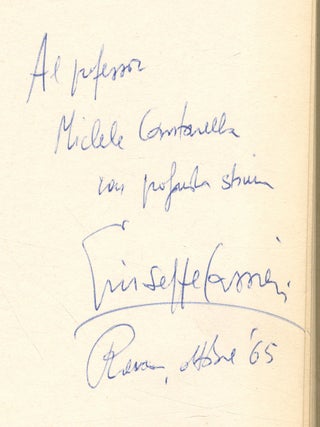 Al professor
Michele Cantarella
con profonda stima
Giuseppe Cassieri
Roma, ottobre '65